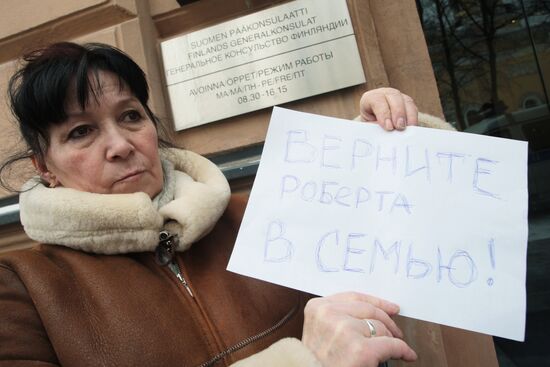 SUOMEN PÄÄKONSULAATTI
FINLANDS GENERALKONSULAT
ГЕНЕРАЛЬНОЕ КОНСУЛЬСТВО ФИНЛЯНДИИ
AVOINNA/ÖPPET/РЕЖИМ РАБОТЫ
MA/MÅ/ПН - PE/FRE/ПТ
08.30-16.15
ВЕРНИТЕ
РОБЕРТА
В СЕМЬЮ!